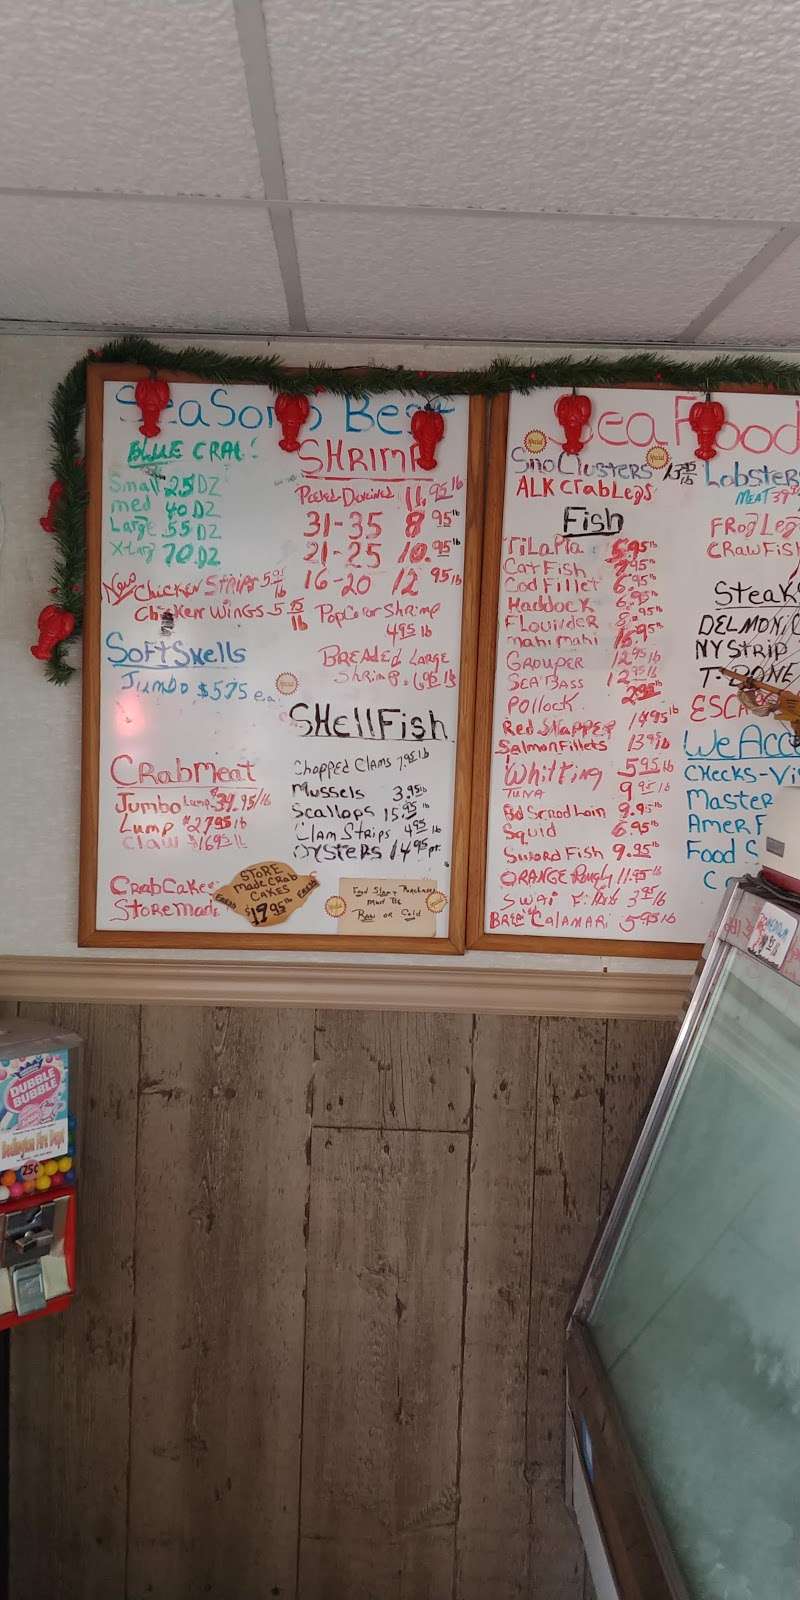 Season's Best
BLUE CRAB!
Small 25 DZ
med 40 DZ
Large 55 DZ
X-Larg 70 DZ
New Chicken Strips 5.95 lb
Chicken Wings - 5.95 lb
Soft Shells
Jumbo $5.75 ea.
CRabmeat
Jumbo Lump $34.95/lb
Lump $27.95 lb
Claw $16.95 lb
CRabCakes
Store Made
STORE
Made CRab
CAKES
$17.95 lb
SHRIMP
Peeled-Deveined 11.95 lb
31-35 8.95 lb
21-25 10.95 lb
16-20 12.95 lb
PopCorn Shrimp
4.95 lb
BREADED LARGE
Shrimp. 6.95 lb
SHellFish
Chopped Clams 7.95 lb
Mussels 3.95 lb
Scallops 15.95 lb
Clam Strips 4.95 lb
OYSTERS 14.95 pt.
Food Stamp Purchases
Must Be
Raw or Cold
SeaFood
Special
Special
Sno Clusters
ALK CrabLegs
Fish
TiLaPia 5.95 lb
CatFish 7.95 lb
Cod Fillet 6.95 lb
Haddock 6.95 lb
FLounder 8.95 lb
mahi mahi 16.95 lb
GROUPER 12.95 lb
SEA BASS 12.95 lb
Pollock 2.95 lb
Red SNAPPER 14.95 lb
Salmon Fillets 13.95 lb
Whitting 5.95 lb
TUNA 9.95 lb
Bd Scrod Loin 9.95 lb
Squid 6.95 lb
Sword Fish 9.95 lb
ORANGE Roughy 11.95 lb
Swai 3.95 lb
CALAMARI 5.95 lb
Lobster
MEAT
FRog Leg
CRawFish
Steak
DELMONIC
NY STRIP
T-BONE
ESCA
We Acce
CHecks-Vi
Master
Amer F
Food S
DUBBLE
BUBBLE
Fire Dept
25¢